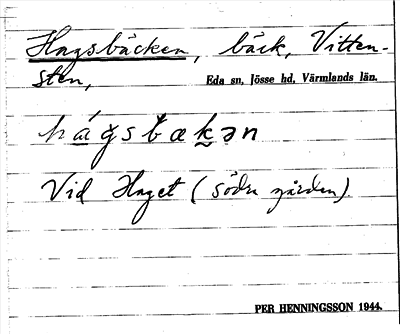 Hagsbäcken, bäck, Vitten-
sten, Eda sn, Jösse hd, Värmlands län.
hágsbækən
Vid Haget (södra gården)
PER HENNINGSSON 1944.